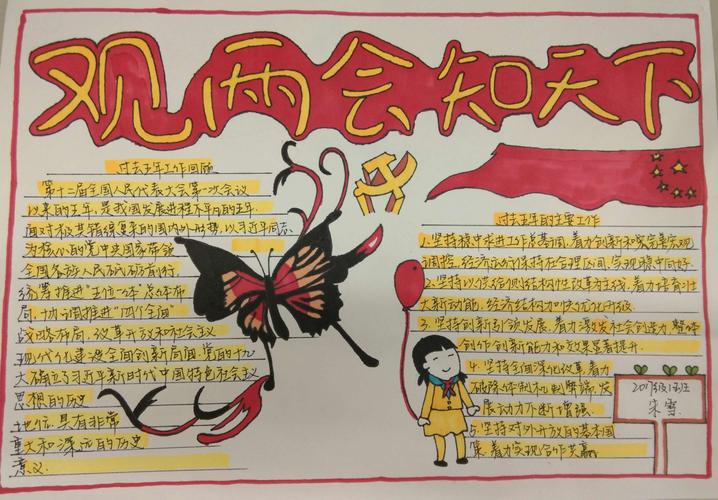 观两会知天下
过去五年工作回顾
第十二届全国人民代表大会第一次会议
以来的五年,是我国发展进程不平凡的五年.
面对极其错综复杂的国内外形势,以习近平同志
为核心的党中央团家带领
全国各族人民砥砺前行,
统筹推进"五位一体"总体布
局,协调推进"四个全面"
战略布局,改革开放和社会主义
现代化建设全面创新局面,党的十九
大确立了习近平新时代中国特色社会主义
思想的历史
地位,具有非常
重大和深远的历史
意义.
过去五年的主要工作
1.坚持稳中求进工作总基调,着力创新和完善宏观
调控,经济运行保持在合理区间,实现稳中向好
2.坚持以供给侧结构性改革为主线,着力培育壮
大新动能,经济结构加快优化升级.
3.坚持创新引领发展,着力激发社会创造力,整体
创作创新能力和效果显著提升.
4.坚持全面深化改革,着力
破除体制机制弊端,发
展动力不断增强.
5.坚持对外开放的基本国
策,着力实现合作共赢
2017级1班
朱雪.